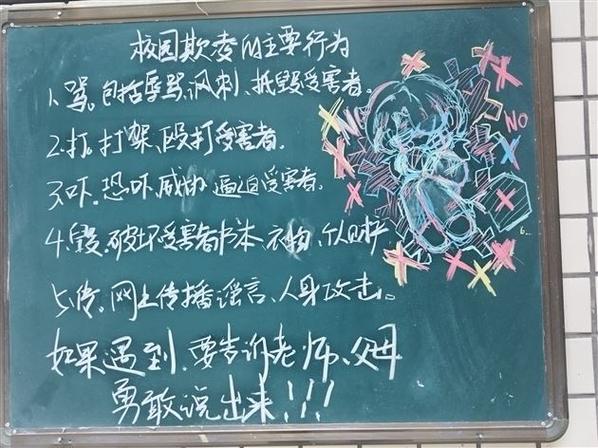 校园欺凌的主要行为
1.骂。包括辱骂、讽刺、抵毁受害者。
2.打。打架、殴打受害者。
3.吓。恐吓、威胁、逼迫受害者。
4.毁。破坏受害者书本、衣物、个人财产
5.传。网上传播谣言、人身攻击。
如果遇到、要告诉老师、父母
勇敢说出来!!!
NO
NO